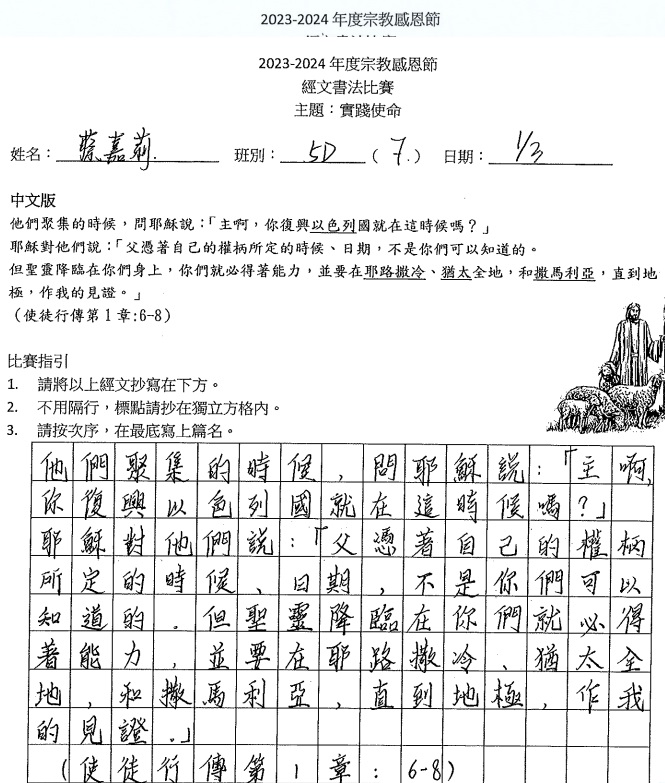 2023-2024 年度宗教感恩節
2023-2024 年度宗教感恩節
經文書法比賽
主題：實踐使命
姓名：蔡嘉莉. 班別：5D ( 7. ) 日期：1/3
中文版
他們聚集的時候，問耶穌說：「主啊，你復興以色列國就在這時候嗎？」
耶穌對他們說：「父憑著自己的權柄所定的時候、日期，不是你們可以知道的。
但聖靈降臨在你們身上，你們就必得著能力，並要在耶路撒冷、猶太全地，和撒馬利亞，直到地
極，作我的見證。」
（使徒行傳第 1 章:6-8）
比賽指引
1. 請將以上經文抄寫在下方。
2. 不用隔行，標點請抄在獨立方格內。
3. 請按次序，在最底寫上篇名。
他們聚集的時候，問耶穌說：「主啊，
你復興以色列國就在這時候嗎？」
耶穌對他們說：「父憑著自己的權柄
所定的時候、日期，不是你們可以
知道的。但聖靈降臨在你們就必得
著能力，並要在耶路撒冷、猶太全
地，和撒馬利亞，直到地極，作我
的見證。」
(使徒行傳第1章：6-8)